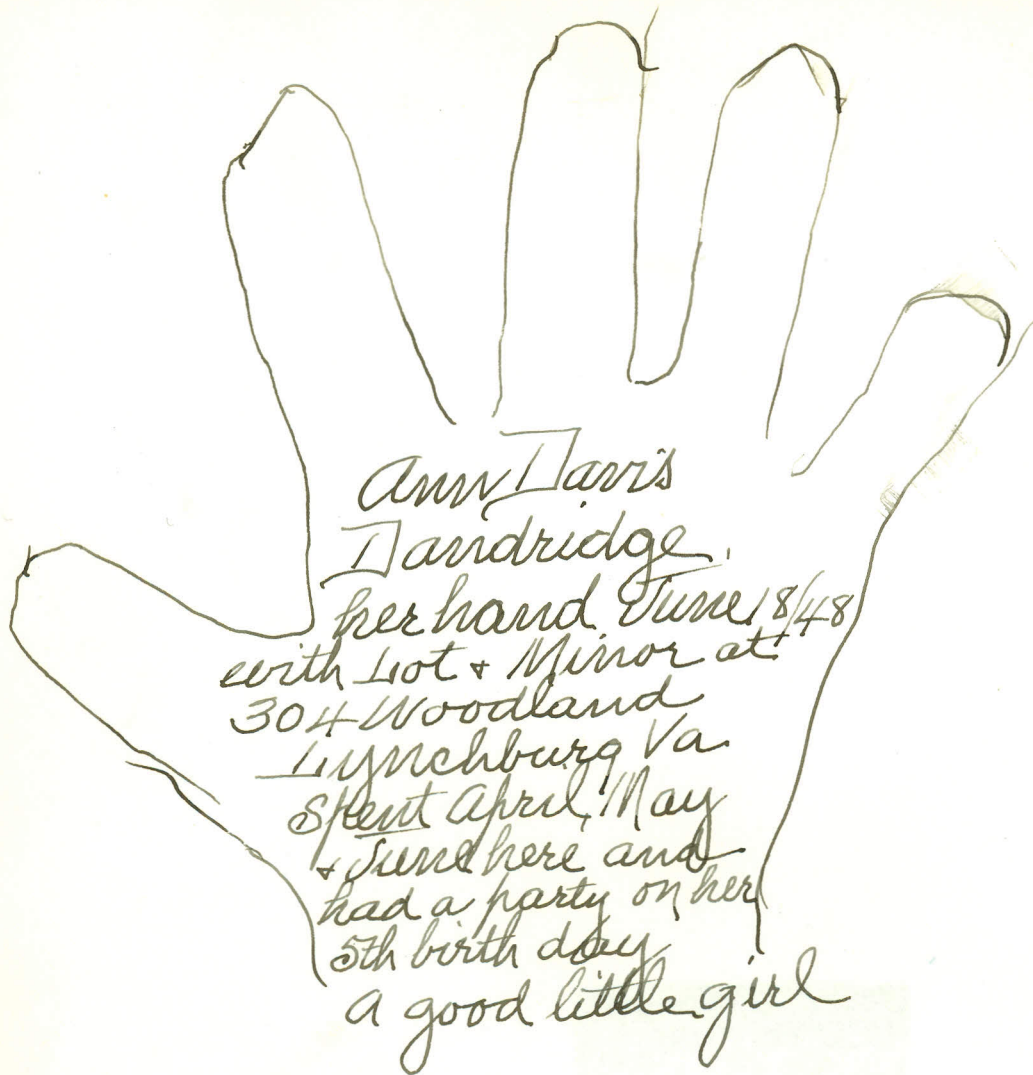 Ann Davis
Dandridge.
her hand June 18/48
with Lot & Minor at
304 Woodland
Lynchburg Va
Spent April, May
& June here and
had a party on her
5th birth day
A good little girl